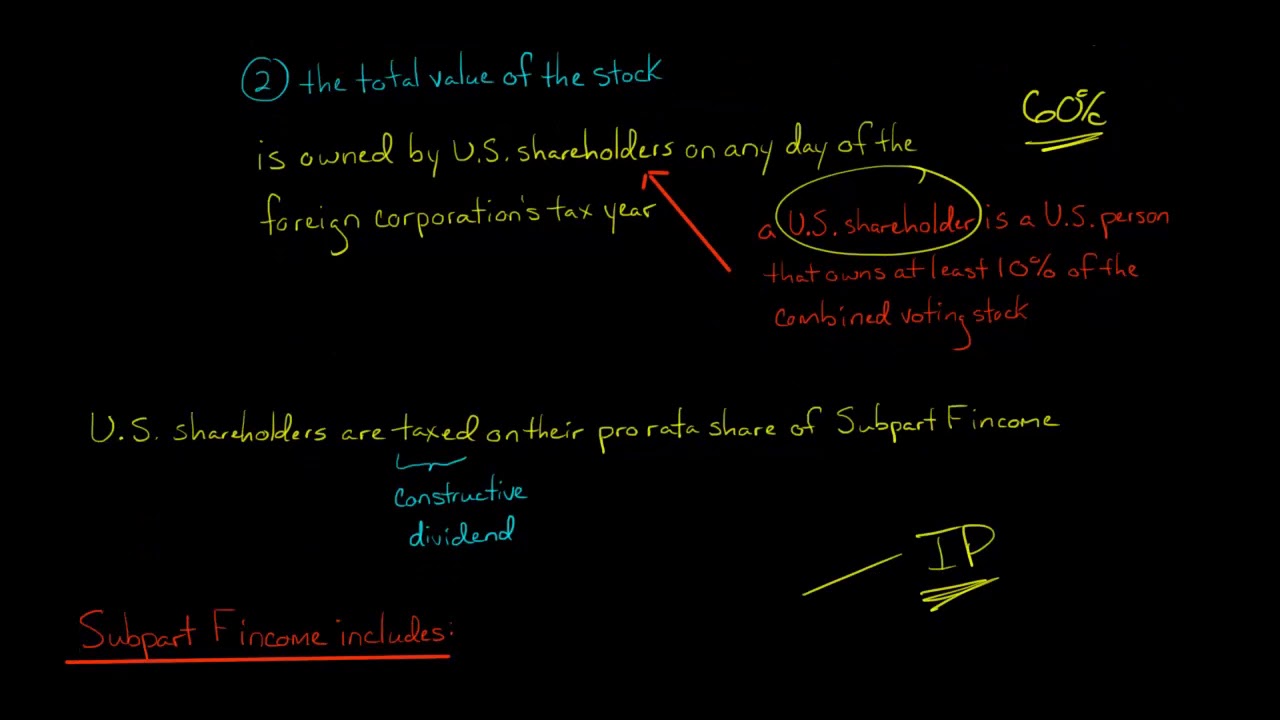 ② the total value of the stock
60%
is owned by U.S. shareholders on any day of the
foreign corporation's tax year
a U.S. shareholder is a U.S. person
that owns at least 10% of the
combined voting stock
U.S. shareholders are taxed on their pro rata share of Subpart F income
constructive
dividend
IP
Subpart F income includes: